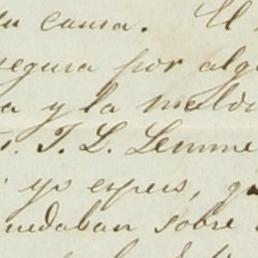 su causa. El
segura por alg
a y la maldi
r. T. L. Lemme
yo espero, qu
uedaban sobre